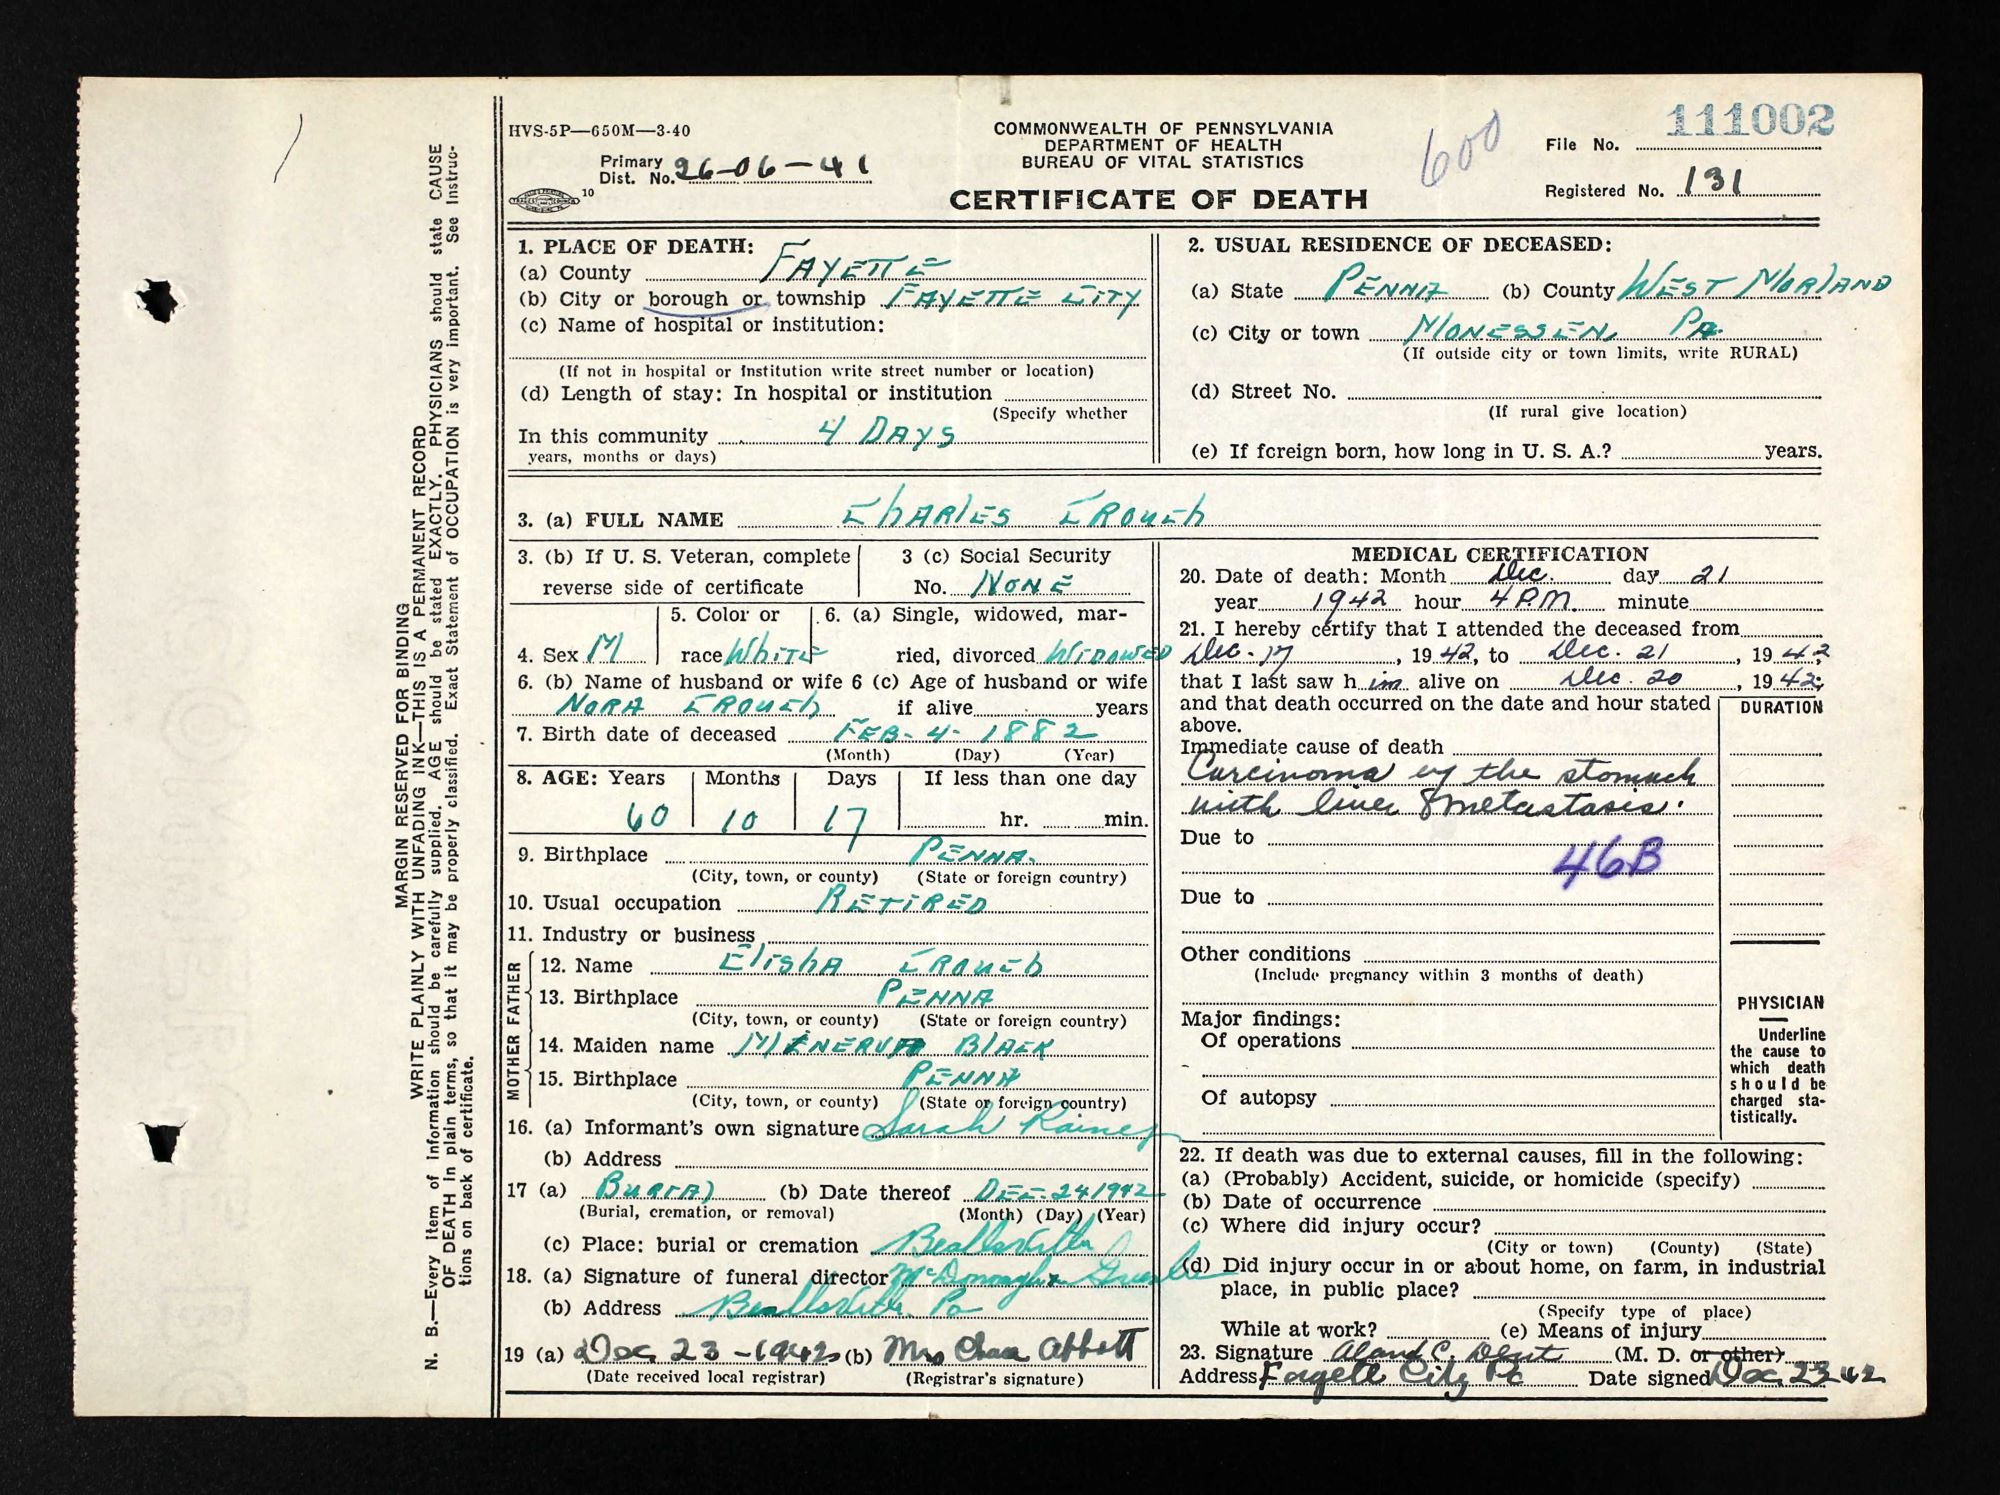 HVS-5P—650M—3-40
COMMONWEALTH OF PENNSYLVANIA
DEPARTMENT OF HEALTH
BUREAU OF VITAL STATISTICS
CERTIFICATE OF DEATH
600
111002
File No.
Registered No. 131
Primary
Dist. No. 26-06-41
10
MARGIN RESERVED FOR BINDING
WRITE PLAINLY WITH UNFADING INK—THIS IS A PERMANENT RECORD
N. B.—Every item of information should be carefully supplied. AGE should be stated EXACTLY. PHYSICIANS should state CAUSE
OF DEATH in plain terms, so that it may be properly classified. Exact Statement of OCCUPATION is very important. See Instruc-
tions on back of certificate.
1. PLACE OF DEATH:
(a) County FAYETTE
(b) City or borough or township FAYETTE CITY
(c) Name of hospital or institution:
(If not in hospital or institution write street number or location)
(d) Length of stay: In hospital or institution
(Specify whether
In this community 4 DAYS
years, months or days)
2. USUAL RESIDENCE OF DECEASED:
(a) State PENNA (b) County WEST MORLAND
(c) City or town MONESSEN, PA.
(If outside city or town limits, write RURAL)
(d) Street No.
(If rural give location)
(e) If foreign born, how long in U. S. A.? years.
3. (a) FULL NAME CHARLES CROUCH
3. (b) If U. S. Veteran, complete
reverse side of certificate
3 (c) Social Security
No. NONE
4. Sex M
5. Color or
race WHITE
6. (a) Single, widowed, mar-
ried, divorced WIDOWED
6. (b) Name of husband or wife 6 (c) Age of husband or wife
NORA CROUCH if alive years
7. Birth date of deceased FEB- 4- 1882
(Month) (Day) (Year)
8. AGE: Years Months Days If less than one day
60 10 17 hr. min.
9. Birthplace PENNA.
(City, town, or county) (State or foreign country)
10. Usual occupation RETIRED
11. Industry or business
FATHER
12. Name ELISHA CROUCH
13. Birthplace PENNA
(City, town, or county) (State or foreign country)
MOTHER
14. Maiden name MINERVA BLACK
15. Birthplace PENNA
(City, town, or county) (State or foreign country)
16. (a) Informant's own signature Sarah Rainey
(b) Address
17 (a) BURIAL (b) Date thereof DEC-24 1942
(Burial, cremation, or removal) (Month) (Day) (Year)
(c) Place: burial or cremation Beallsville
18. (a) Signature of funeral director McDonough
(b) Address Beallsville Pa
19 (a) Dec 23-1942 (b) Mrs Abbott
(Date received local registrar) (Registrar's signature)
MEDICAL CERTIFICATION
20. Date of death: Month Dec. day 21
year 1942 hour 4 P.M. minute
21. I hereby certify that I attended the deceased from
Dec. 17, 1942, to Dec. 21, 1942
that I last saw him alive on Dec. 20, 1942;
and that death occurred on the date and hour stated
above.
DURATION
Immediate cause of death
Carcinoma of the stomach
with liver metastasis.
Due to
46B
Due to
Other conditions
(Include pregnancy within 3 months of death)
Major findings:
Of operations
Of autopsy
PHYSICIAN
Underline
the cause to
which death
should be
charged sta-
tistically.
22. If death was due to external causes, fill in the following:
(a) (Probably) Accident, suicide, or homicide (specify)
(b) Date of occurrence
(c) Where did injury occur?
(City or town) (County) (State)
(d) Did injury occur in or about home, on farm, in industrial
place, in public place?
(Specify type of place)
While at work? (e) Means of injury
23. Signature C. (M. D. or other)
Address Fayette City Pa Date signed Dec. 23 42